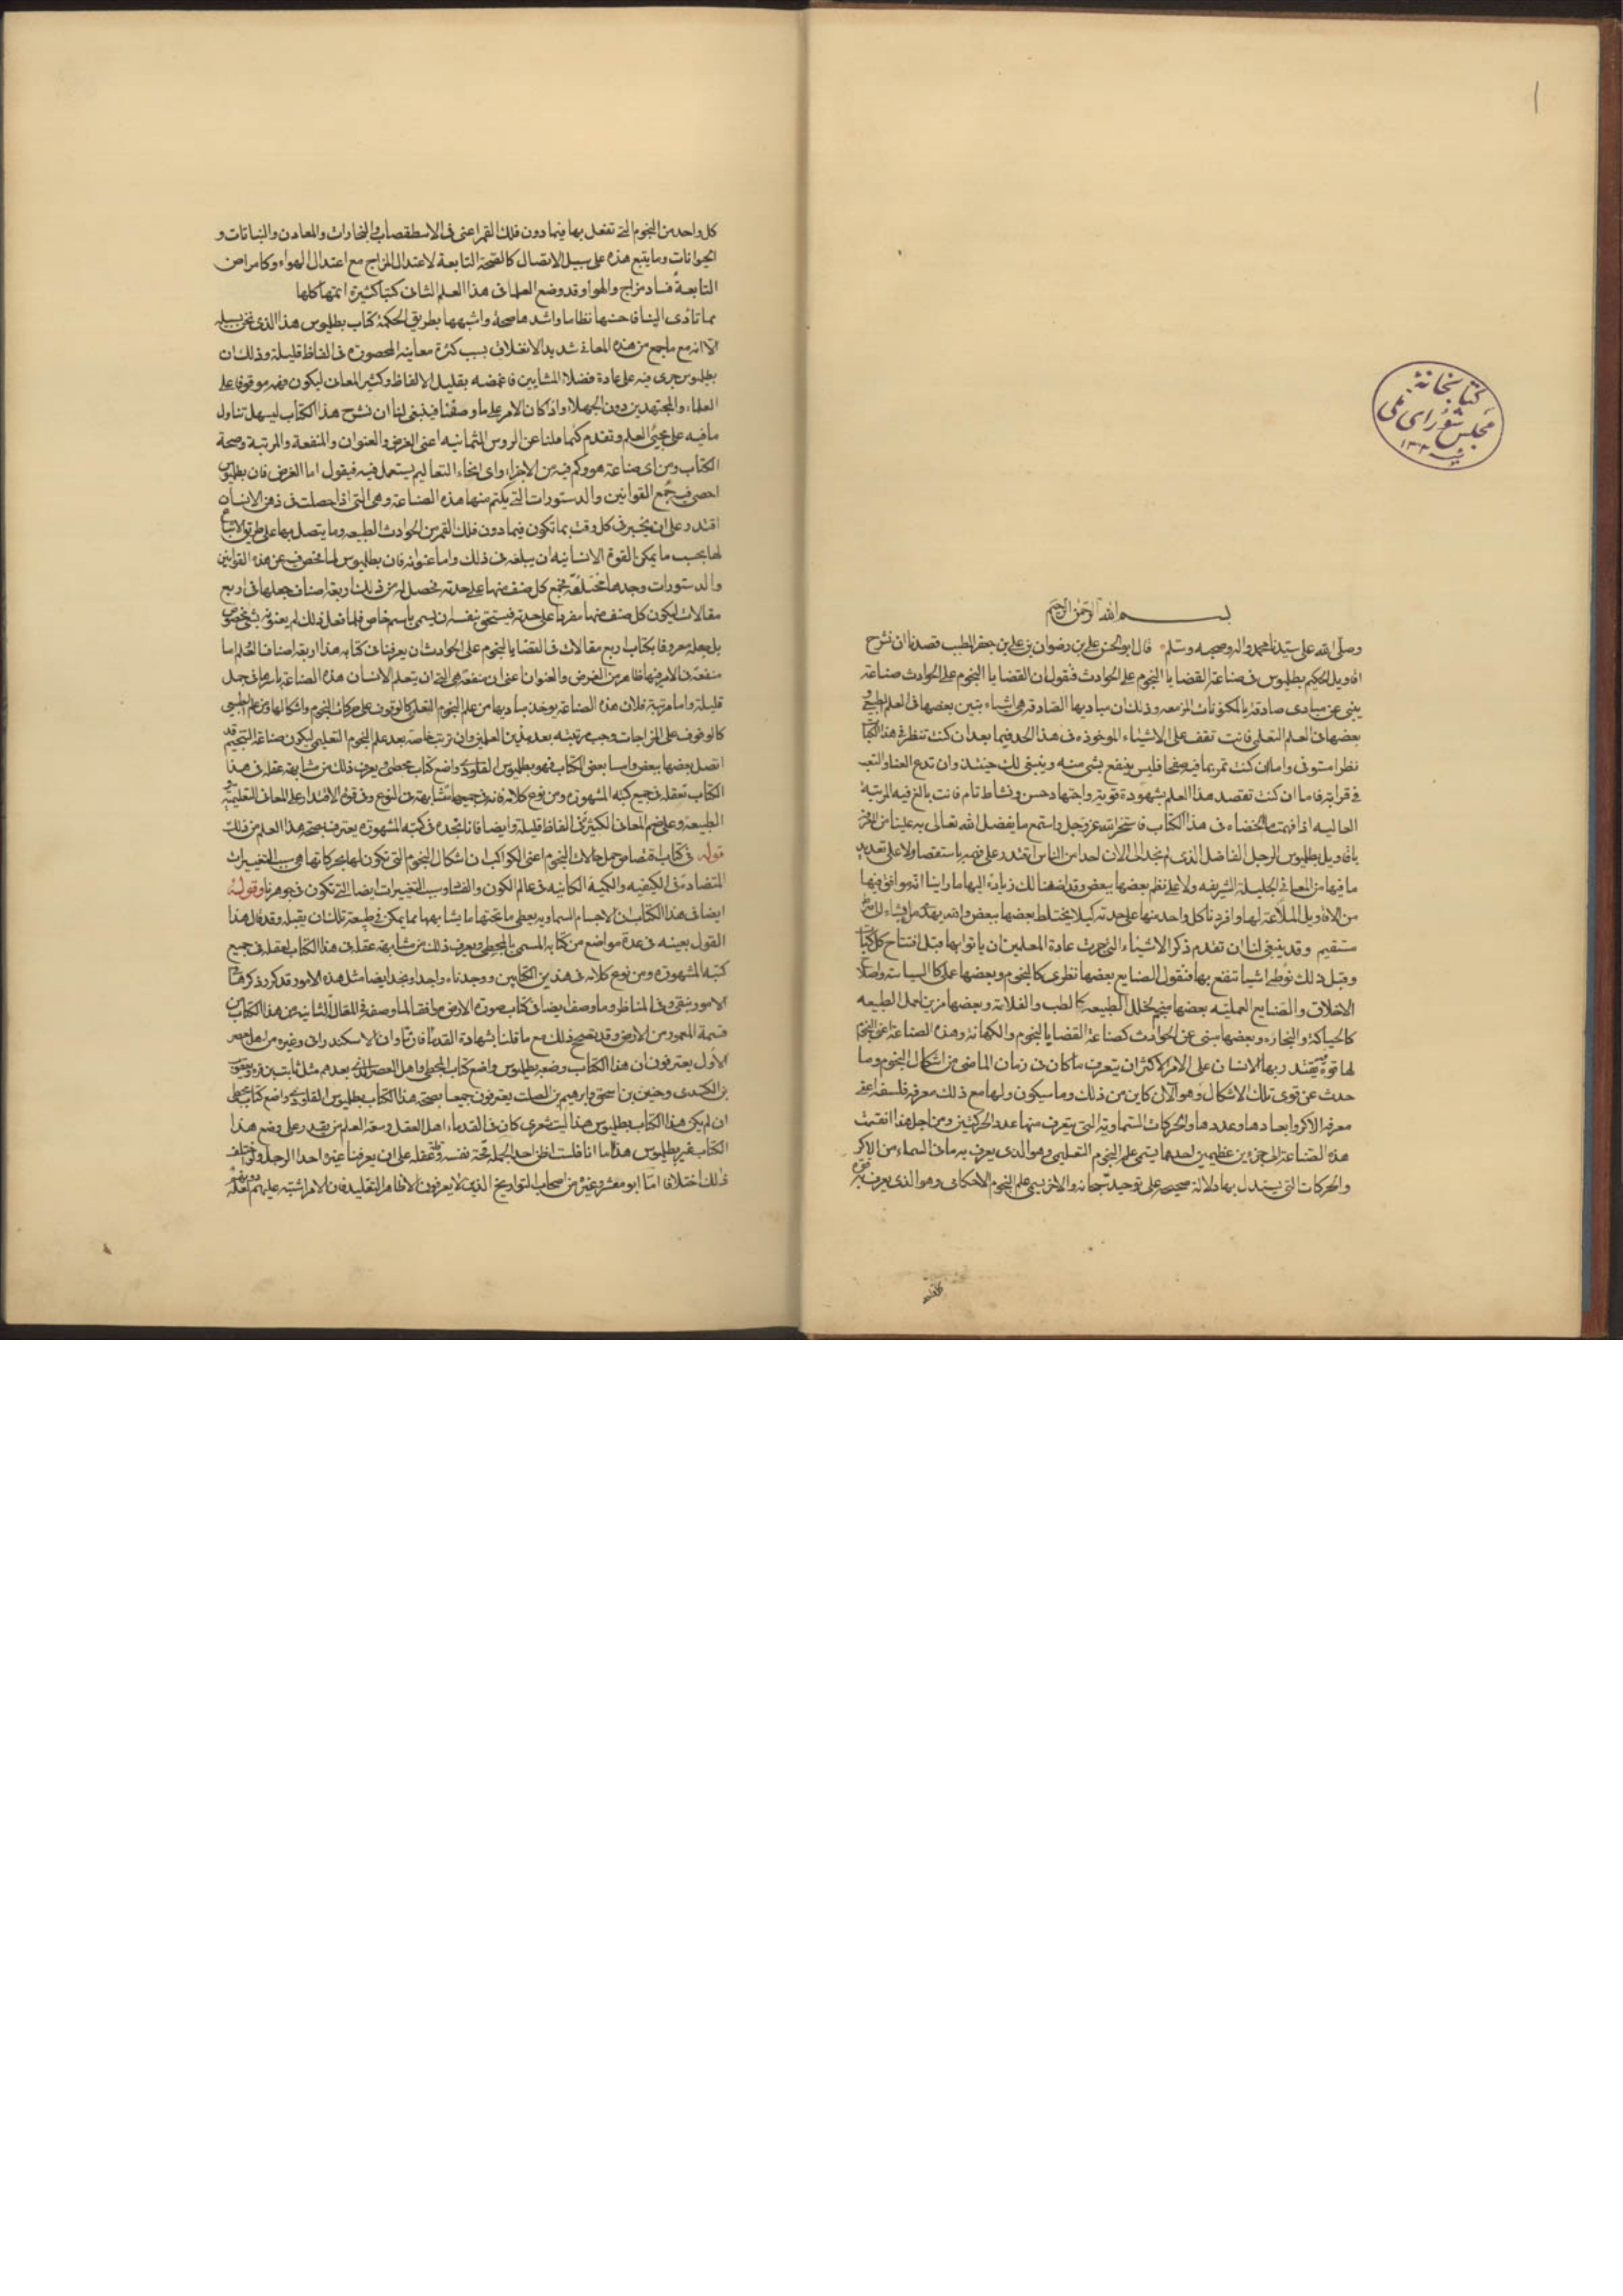 كتابخانهٔ
مجلس شورای ملی
بسم الله الرحمن الرحيم
وصلى الله على سيدنا محمد واله وصحبه وسلم قال ابو الحسن علي بن رضوان بن علي بن جعفر الطبيب قصدنا ان نشرح
اقاويل الحكيم بطلميوس في صناعة القضايا بالنجوم على الحوادث فنقول ان القضايا بالنجوم على الحوادث صناعة
ينبى عن مبادى صادقة بالمكنونات المزمعه وذلك ان مباديها الصادقة هي اشياء بتبين بعضها في العلم الطبيعي و
بعضها في العلم التعليمي فانت تقف على الاشياء الموخوذه في هذا الحد فيما بعد ان كنت تنظر في هذا الكتاب
نظرا مستوفى واما ان كنت تمر بما فيه صفحا فليس ينفع بشى منه وينبغى لك حينئذ وان تدع العنا والتعب
في قراءته فاما ان كنت تقصد هذا العلم بشهوة قوية واجتهاد حسن ونشاط تام فانت بالغ فيه المرتبة
العاليه اذا فهمت ما في هذا الكتاب فاستخر الله عز وجل واستمع ما يفضل الله تعالى به علينا من
باقاويل بطلميوس الرجل الفاضل الذى لم نجد الى الان احدا من الناس اقتدر على فهمه باستقصا ولا على تعديد
ما فيها من المعاني الجليلة الشريفه ولا على نظم بعضها ببعض وقد اضفنا لك زيادة اليها ما راينا انه موافق فيها
من الاقاويل الملاءمة لها وافردنا كل واحد منها على حدته كيلا يختلط بعضها ببعض والله يهدى من يشاء الى صراط
مستقيم وقد ينبغى لنا ان نقدم ذكر الاشياء التي جرت عادة المعلمين ان ياتوا بها قبل افتتاح كل كتاب
وقبل ذلك نوطى اشيا ننتفع بها فنقول الصنايع بعضها نظرى كالنجوم وبعضها عملى كالسياسة واصلاح
الاخلاق والصنايع العمليه بعضها يتمم لخلل الطبيعه كالطب والفلاحة وبعضها من عمل الطبيعه
كالحياكة والنجارة وبعضها ينبى عن الحوادث كصناعة القضايا بالنجوم والكهانة وهذه الصناعة اعنى النجوم
لها قوة يقتدر بها الانسان على الامر الاكثر ان يتعرف ما كان في زمان الماضى من اشكال النجوم وما
حدث عن قوى تلك الاشكال وهو الان كاين من ذلك وما سيكون ولها مع ذلك معرفة فلسفة اعنى
معرفة الاكر وابعادها وعددها والحركات السماوية التي يتعرف منها عدد المحركين ومن اجل هذا انقسمت
هذه الصناعة الى جزوين عظيمين احدهما يسمى علم النجوم التعليمى وهو الذى يعرف به ما في السماء من الاكر
والحركات التي يستدل بها دلالة صحيحة على توحيده سبحانه والاخر يسمى علم النجوم الاحكامى وهو الذى يعرف به قوة
كل واحد من النجوم التي تفعل بها فيما دون فلك القمر اعنى في الاسطقصات والبخارات والمعادن والنباتات و
الحيوانات وما يتبع هذه على سبيل الاتصال كالصحة التابعة لاعتدال المزاج مع اعتدال الهواء وكامراض
التابعة فساد مزاج والهوا وقد وضع العلما في هذا العلم الثانى كتبا كثيرة اتمها كلها
مما تادى الينا فاحسنها نظاما واشدها صحة واشبهها بطريق الحكمة كتاب بطلميوس هذا الذى نحن بسبيله
الا انه مع ما جمع من هذه المعاني شديد الانغلاق بسبب كثرة معاينه المحصورة في الفاظ قليلة وذلك ان
بطلميوس جرى فيه على عادة فضلاء المشايين فاغمضه بقليل الالفاظ وكثير المعانى ليكون فهمه موقوفا على
العلماء والمجتهدين دون الجهلاء واذ كان الامر على ما وصفنا فينبغى لنا ان نشرح هذا الكتاب ليسهل تناول
ما فيه على محبى العلم ونقدم كما قلنا عن الروس الثمانيه اعنى الغرض والعنوان والمنفعة والمرتبة وصحة
الكتاب ومن اى صناعة هو وكم فيه من الاجزاء واى انحاء التعاليم يستعمل فيه فنقول اما الغرض فان بطلميوس
احصى فيه جميع القوانين والدستورات التي يلتئم منها هذه الصناعة وهي التي اذا حصلت في ذهن الانسان
اقتدر على ان يخبر في كل وقت بما تكون فيما دون فلك القمر من الحوادث الطبيعه وما يتصل بها على طريق الاتباع
لها بحسب ما يمكن القوة الانسانيه ان يبلغه في ذلك واما عنوانه فان بطلميوس لما فحص عن هذه القوانين
والدستورات وجدها مختلفة فجمع كل صنف منها على حدته فحصل له من ذلك اربعة اصناف جعلها في اربع
مقالات ليكون كل صنف منها مفردا على حدته فيستحق بنفسه ان يسمى باسم خاص فلما فعل ذلك لم يعنونه بشى مخصوص
بل جعله معروفا بكتاب اربع مقالات في القضايا بالنجوم على الحوادث ان يعرفنا في كتابه هذا اربعة اصناف العلم اما
منفعته فالامر فيها ظاهر من الغرض والعنوان اعنى ان منفعته هي التى ان يتعلم الانسان هذه الصناعة باسرها في جمل
قليلة واما مرتبته فلان هذه الصناعة يوخذ مباديها من علم النجوم التعليمى كالوقوف على حركات النجوم واشكالها ومن علم الطبيعى
كالوقوف على المزاجات وجب مرتبته بعد هذين العلمين وان ترتب خاصة بعد علم النجوم التعليمى ليكون صناعة التنجيم قد
اتصل بعضها ببعض واما بعض الكتاب فهو بطلميوس القلوذى واضع كتاب مجسطى ويعرف ذلك من مشابهة عقله في هذا
الكتاب تعقله في جميع كتبه المشهورة ومن نوع كلامه فانه في جميعها متشابهة في النوع وفي قوة الاقتدار على المعانى التعليميه و
الطبيعه وعلى ضم المعانى الكثيرة في الفاظ قليلة وايضا فانا نجده في كتبه المشهورة يعترف بصحة هذا العلم من ذلك
قوله في كتاب اقتصاص جمل حالات النجوم اعنى الكواكب ان اشكال النجوم التي تكون لها بحركاتها هي سبب التغييرات
المتضادة في الكيفيه والكميه الكائنه في عالم الكون والفساد وسبب التغييرات ايضا التي تكون في جوهرنا وقوله
ايضا في هذا الكتاب ان الاجسام السماويه يعطى ما تحتها ما يشابهها مما يمكن في طبيعة تلك ان يقبله وقد قال هذا
القول بعينه في عدة مواضع من كتابه المسمى بالمجسطى ويعرف ذلك من مشابهة عقله في هذا الكتاب لعقله في جميع
كتبه المشهورة ومن نوع كلامه في هذين الكتابين ووجدناه واحدا ونجد ايضا مثل هذه الامور قد كرر ذكرها
الامور بنفى وفى المناظر وما وصف ايضا في كتاب صورة الارض موافقا لما وصفه في المقالة الثانيه من هذا الكتاب من
قسمة المعمور من الارض وقد يصحح ذلك مع ما قلنا بشهادة القدماء فان ثاون الاسكندرانى وغيره من اهل العصر
الاول يعترفون ان هذا الكتاب وضعه بطلميوس واضع كتاب المجسطى واهل العصر الذى بعدهم مثل ثابت بن قره ويعقوب
بن الكندى وحنين بن اسحق وابرهيم بن الصلت يعترفون جميعا بصحة هذا الكتاب بطلميوس القلوذى واضع كتاب مجسطى
ان لم يكن هذا الكتاب بطلميوس هذا ليت شعرى كان في القدماء اهل العقل وسعة العلم من يقدر على وضع هذا
الكتاب غير بطلميوس هذا اما انا فلست اظن احدا بالجملة تحثه نفسه وعقله على ان يعرفنا غيره احدا الرجل وقد اختلف
في ذلك اختلافا اما ابو معشر وغيره من اصحاب التواريخ الذين لا يعرفون الا ظاهر التقليد فان الامر اشتبه عليهم